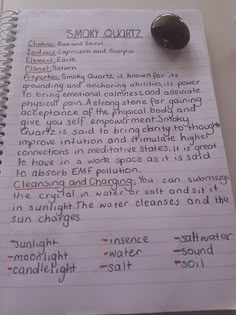 SMOKY QUARTZ
Chakra: Root and Sacral
Zodiacs: Capricorn and Scorpio
Element: Earth
Planet: Saturn
Properties: Smoky Quartz is known for its
grounding and anchoring abilities, its power
to bring emotional calmness and alleviate
physical pain. A strong stone for gaining
acceptance of the physical body and
give you self empowerment. Smoky
Quartz is said to bring clarity to thoughts
improve intuition and stimulate higher
connections in meditative states. it is great
to have in a work space as it is said
to absorb EMF pollution.
Cleansing and Charging: You can submerge
the crystal in water or salt and sit it
in sunlight. The water cleanses and the
sun charges.
-sunlight -insence -saltwater
-moonlight -water -sound
-candlelight -salt -soil